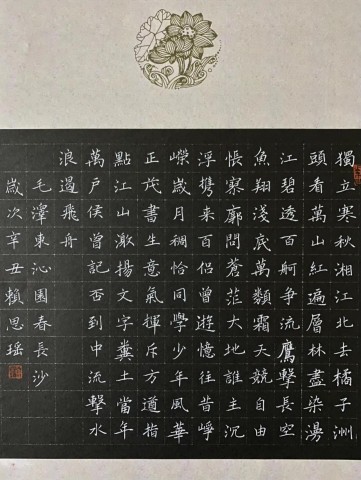 獨立寒秋湘江北去橘子洲
頭看萬山紅遍層林盡染漫
江碧透百舸争流鷹擊長空
魚翔淺底萬類霜天競自由
悵寥廓問蒼茫大地誰主沉
浮携來百侣曾遊憶往昔崢
嶸歲月稠恰同學少年風華
正茂書生意氣揮斥方遒指
點江山激揚文字糞土當年
萬户侯曾記否到中流擊水
浪遏飛舟
毛澤東沁園春長沙
歲次辛丑賴思瑶